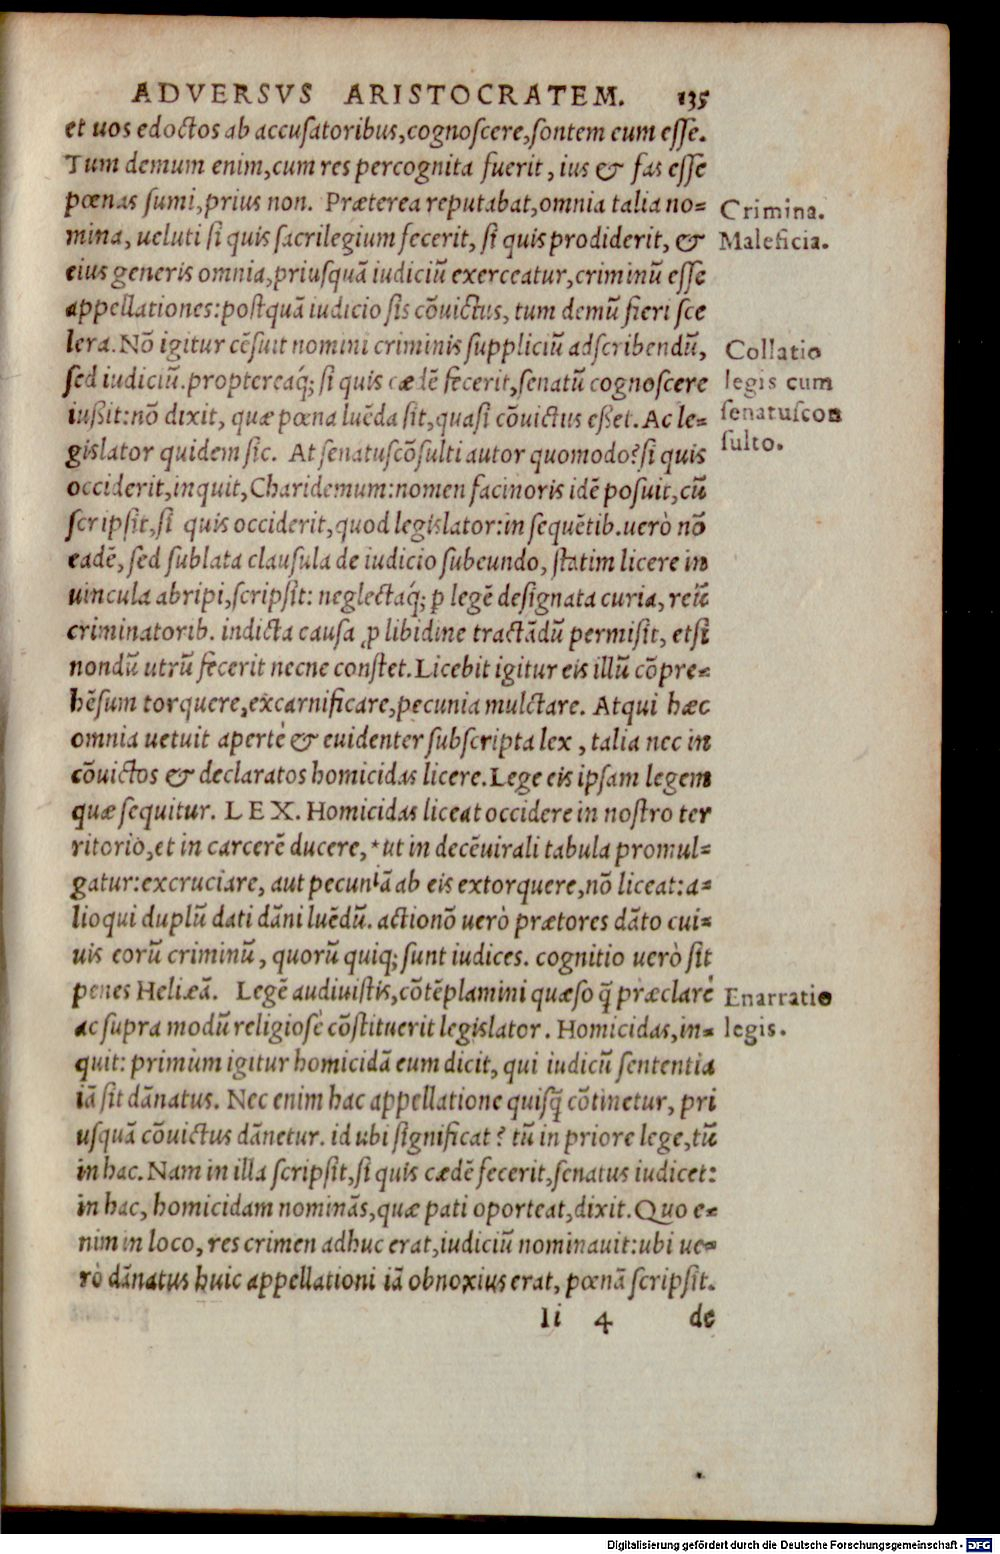 ADVERSVS ARISTOCRATEM. 135
et uos edoctos ab accusatoribus, cognoscere, sontem eum esse.
Tum demum enim, cum res percognita fuerit, ius & fas esse
pœnas sumi, prius non. Præterea reputabat, omnia talia no=
mina, ueluti si quis sacrilegium fecerit, si quis prodiderit, &
eius generis omnia, priusquā iudiciū exerceatur, criminū esse
appellationes: postquā iudicio sis cōuictus, tum demū fieri sce
lera. Nō igitur cēsuit nomini criminis suppliciū adscribendū,
sed iudiciū. proptereaq́; si quis cædē fecerit, senatū cognoscere
iußit: nō dixit, quæ pœna luēda sit, quasi cōuictus eßet. Ac le=
gislator quidem sic. At senatuscōsulti autor quomodo? si quis
occiderit, inquit, Charidemum: nomen facinoris idē posuit, cū
scripsit, si quis occiderit, quod legislator: in sequētib. uerò nō
eadē, sed sublata clausula de iudicio subeundo, statim licere in
uincula abripi, scripsit: neglectaq́; ꝑ legē designata curia, reū
criminatorib. indicta causa ꝓ libidine tractādū permisit, etsi
nondū utrū fecerit necne constet. Licebit igitur eis illū cōpre=
hēsum torquere, excarnificare, pecunia mulctare. Atqui hæc
omnia uetuit apertè & euidenter subscripta lex, talia nec in
cōuictos & declaratos homicidas licere. Lege eis ipsam legem
quæ sequitur. LEX. Homicidas liceat occidere in nostro ter
ritorio, et in carcerē ducere, *ut in decēuirali tabula promul=
gatur: excruciare, aut pecuniā ab eis extorquere, nō liceat: a=
lioqui duplū dati dāni luēdū. actionō uerò prætores dāto cui=
uis eorū criminū, quorū quiq; sunt iudices. cognitio uerò sit
penes Heliæā. Legē audiuistis, cōtēplamini quæso q̄ præclarè
ac supra modū religiosè cōstituerit legislator. Homicidas, in=
quit: primùm igitur homicidā eum dicit, qui iudicū sententia
iā sit dānatus. Nec enim hac appellatione quisq̄ cōtinetur, pri
usquā cōuictus dānetur. id ubi significat? tū in priore lege, tū
in hac. Nam in illa scripsit, si quis cædē fecerit, senatus iudicet:
in hac, homicidam nominās, quæ pati oporteat, dixit. Quo e=
nim in loco, res crimen adhuc erat, iudiciū nominauit: ubi ue=
rò dānatus huic appellationi iā obnoxius erat, pœnā scripsit.
Ii 4 de
Crimina.
Maleficia.
Collatio
legis cum
senatuscon
sulto.
Enarratio
legis.
Digitalisierung gefördert durch die Deutsche Forschungsgemeinschaft - DFG